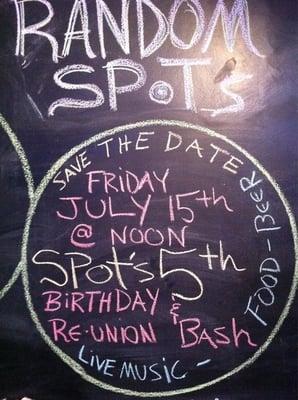 RANDOM
SPOTS
SAVE THE DATE
FRIDAY
JULY 15th
@ NOON
SPOT'S 5th
BIRTHDAY &
RE-UNION BASH
LIVE MUSIC -
FOOD - BEER